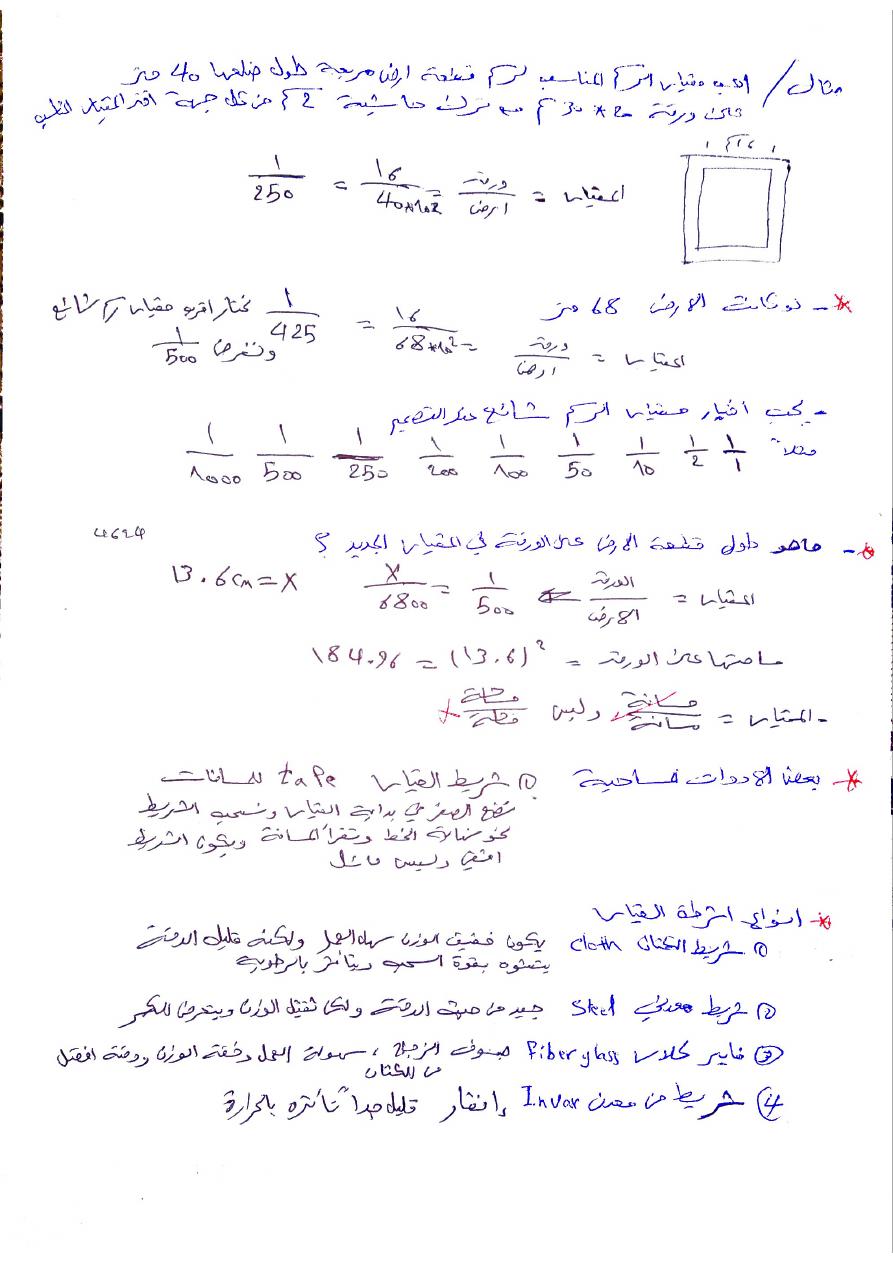 مثال / اوجد مقياس الرسم المناسب لرسم قطعة ارض مربعة طول ضلعها 40 متر
على ورقة 20 * 30 سم مع ترك حاشية 2 سم من كل جهة
المقياس = ورقة/ارض = 16/40*10² = 1/250
*- لو كانت الارض 68 متر
المقياس = ورقة/ارض = 16/68*10² = 1/425 نختار اقرب مقياس رسم شائع
ونفرض 1/500
- يجب اختيار مقياس الرسم شائع عند التصميم
مثلاً 1/1 1/2 1/10 1/50 1/100 1/200 1/250 1/500 1/1000
*- ماهو طول قطعة الارض على الورقة في المقياس الجديد ؟
المقياس = الورقة/الارض ⇐ 1/500 = X/6800 13.6cm = X
مساحتها على الورقة = (13.6)² = 184.96
- المقياس = مسافة/مسافة وليس
*- بعض الادوات مساحية ① شريط القياس tape للمسافات
نضع الصفر في بداية القياس ونسحب الشريط
نحو نهاية الخط ونقرأ المسافة ويكون الشريط
افقي وليس مائل
*- انواع اشرطة القياس
① شريط الكتان cloth يكون خفيف الوزن سهل العمل ولكنه قليل الدقة
يتشوه بقوة السحب ويتأثر بالرطوبة
② شريط معدني Steel جيد من حيث الدقة ولكن ثقيل الوزن ويتعرض للكسر
③ فايبر كلاس Fiber glass صوف الزجاج ، سهولة العمل وخفة الوزن ودقة افضل
من الكتان
④ شريط من معدن Invar إنفار قليل جداً تأثره بالحرارة